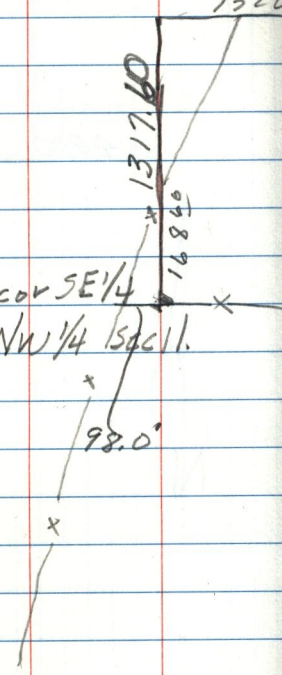 1317.60
168 60
cor SE 1/4
NW 1/4 Sec 11.
98.0'